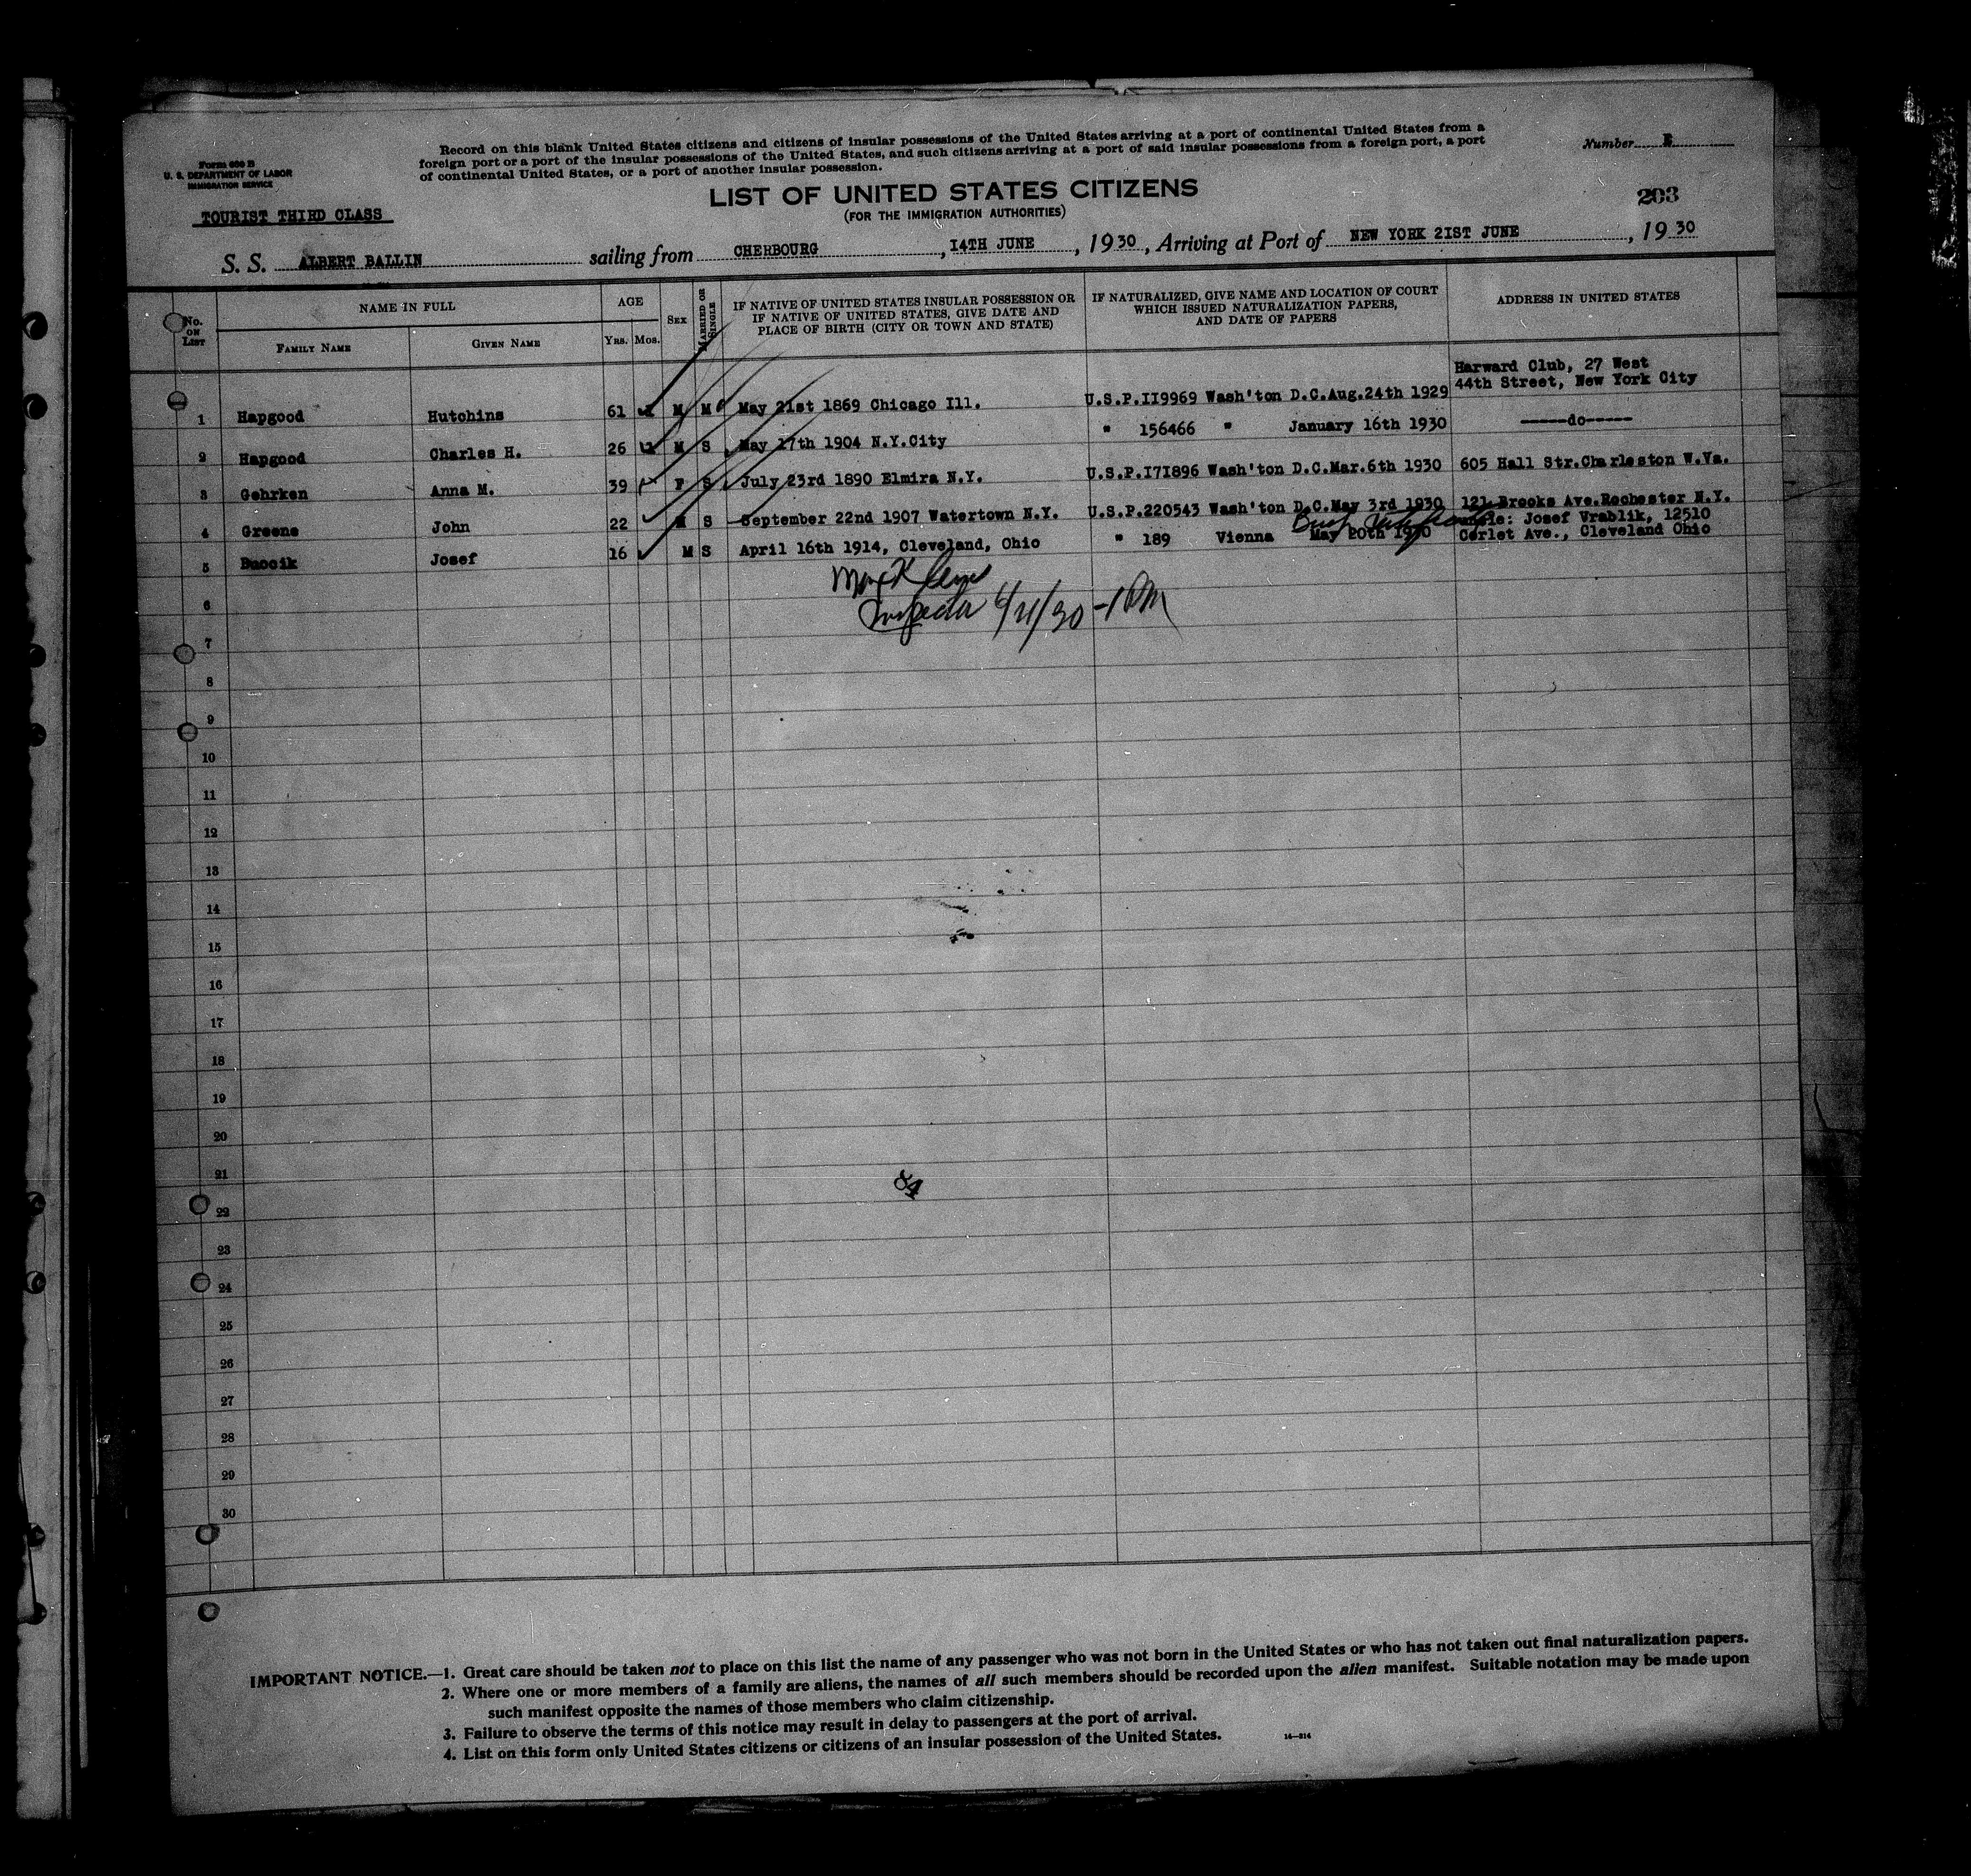 Form 630 B
U. S. DEPARTMENT OF LABOR
IMMIGRATION SERVICE
Record on this blank United States citizens and citizens of insular possessions of the United States arriving at a port of continental United States from a
foreign port or a port of the insular possessions of the United States, and such citizens arriving at a port of said insular possessions from a foreign port, a port
of continental United States, or a port of another insular possession.
Number
LIST OF UNITED STATES CITIZENS
(FOR THE IMMIGRATION AUTHORITIES)
203
TOURIST THIRD CLASS
S. S. ALBERT BALLIN sailing from CHERBOURG, 14TH JUNE, 1930, Arriving at Port of NEW YORK 21ST JUNE, 1930
No. ON LIST
NAME IN FULL
FAMILY NAME
GIVEN NAME
AGE
YRS. MOS.
SEX
MARRIED OR SINGLE
IF NATIVE OF UNITED STATES INSULAR POSSESSION OR
IF NATIVE OF UNITED STATES, GIVE DATE AND
PLACE OF BIRTH (CITY OR TOWN AND STATE)
IF NATURALIZED, GIVE NAME AND LOCATION OF COURT
WHICH ISSUED NATURALIZATION PAPERS,
AND DATE OF PAPERS
ADDRESS IN UNITED STATES
Harward Club, 27 West
44th Street, New York City
1 Hapgood Hutchins 61 M M May 21st 1869 Chicago Ill. U.S.P.II9969 Wash'ton D.C.Aug.24th 1929
2 Hapgood Charles H. 26 M S May 17th 1904 N.Y.City " 156466 " January 16th 1930 -----do-----
3 Gehrken Anna M. 39 F S July 23rd 1890 Elmira N.Y. U.S.P.I7I896 Wash'ton D.C.Mar.6th 1930 605 Hall Str.Charleston W.Va.
4 Greene John 22 M S September 22nd 1907 Watertown N.Y. U.S.P.220543 Wash'ton D.C.May 3rd 1930 121 Brooks Ave.Rochester N.Y.
5 Buocik Josef 16 M S April 16th 1914, Cleveland, Ohio " 189 Vienna May 20th 1930 Josef Vrablik, 12510
Corlet Ave., Cleveland Ohio
Inspector 6/21/30 - 1 PM
6
7
8
9
10
11
12
13
14
15
16
17
18
19
20
21
84
22
23
24
25
26
27
28
29
30
IMPORTANT NOTICE.—1. Great care should be taken not to place on this list the name of any passenger who was not born in the United States or who has not taken out final naturalization papers.
2. Where one or more members of a family are aliens, the names of all such members should be recorded upon the alien manifest. Suitable notation may be made upon
such manifest opposite the names of those members who claim citizenship.
3. Failure to observe the terms of this notice may result in delay to passengers at the port of arrival.
4. List on this form only United States citizens or citizens of an insular possession of the United States.
14—814